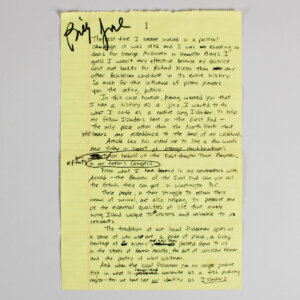 Big Joel
1
The last time I became involved in a political
campaign it was 1972 and I was knocking on
doors for George McGovern in Hampton Bays. I
guess I wasn't very effective because my district
cast out ballots for Richard Nixon than any
other Republican candidate in its entire history.
So much for the influence of piano players
upon the voting public.
In this case however, having warned you that
I had a history as a jinx, I wanted to do
what I could as a native Long Islander to help
my fellow Islanders here in the East End —
the only place other than the North Fork that
still bears any resemblance to the land of my childhood.
And I could like to say a few words
here today in support of George Hochbrueckner's
on behalf of the East Hampton Town Baymen,
in our nation's Congress.
From what I have learned in my conversations with
Arnold — the Baymen of the East End can use all
the friends they can get in Washington D.C.
These people, in their struggle to retain their
means of survival, are also helping to preserve one
of the essential qualities of life that make
Long Island unique to visitors and valuable to its
residents.
The tradition of our local fisherman gives us
a sense of who we are, a pride of place, a living
heritage of
in the stories of Herman Melville, the art of Winslow Homer
and the poetry of Walt Whitman.
And when the local fisherman can no longer produce
fish in what is worldwide as a fish producing
region — then we have lost our identity as Islanders